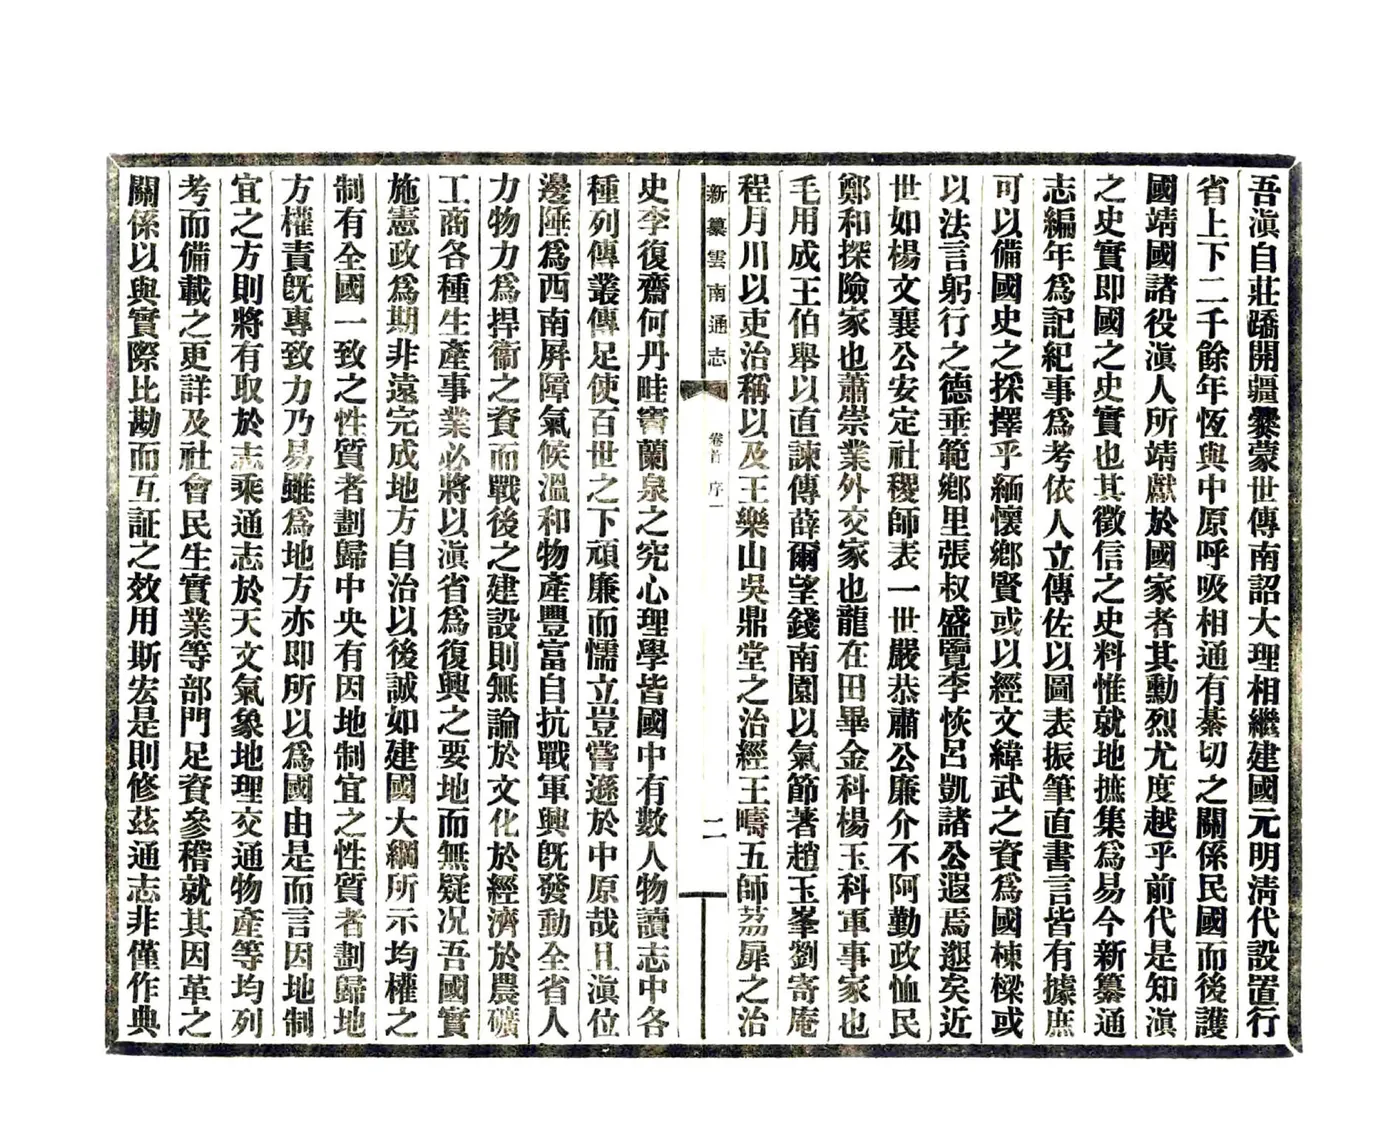 吾滇自莊蹻開疆爨蒙世傳南詔大理相繼建國元明清代設置行
省上下二千餘年恆與中原呼吸相通有綦切之關係民國而後護
國靖國諸役滇人所靖獻於國家者其勳烈尤度越乎前代是知滇
之史實即國之史實也其徵信之史料惟就地摭集為易今新纂通
志編年為記紀事為考依人立傳佐以圖表振筆直書言皆有據庶
可以備國史之採擇乎緬懷鄉賢或以經文緯武之資為國棟樑或
以法言躬行之德垂範鄉里張叔盛覽李恢呂凱諸公遐焉邈矣近
世如楊文襄公安定社稷師表一世嚴恭肅公廉介不阿勤政恤民
鄭和探險家也蕭崇業外交家也龍在田畢金科楊玉科軍事家也
毛用成王伯舉以直諫傳薛爾望錢南園以氣節著趙玉峯劉寄庵
程月川以吏治稱以及王樂山吳鼎堂之治經王疇五師荔扉之治
新纂雲南通志
卷首 序一
二
史李復齋何丹畦竇蘭泉之究心理學皆國中有數人物讀志中各
種列傳叢傳足使百世之下頑廉而懦立豈嘗遜於中原哉且滇位
邊陲為西南屏障氣候溫和物產豐富自抗戰軍興旣發動全省人
力物力為捍衞之資而戰後之建設則無論於文化於經濟於農礦
工商各種生產事業必將以滇省為復興之要地而無疑况吾國實
施憲政為期非遠完成地方自治以後誠如建國大綱所示均權之
制有全國一致之性質者劃歸中央有因地制宜之性質者劃歸地
方權責旣專致力乃易雖為地方亦即所以為國由是而言因地制
宜之方則將有取於志乘通志於天文氣象地理交通物產等均列
考而備載之更詳及社會民生實業等部門足資參稽就其因革之
關係以與實際比勘而互証之效用斯宏是則修茲通志非僅作典